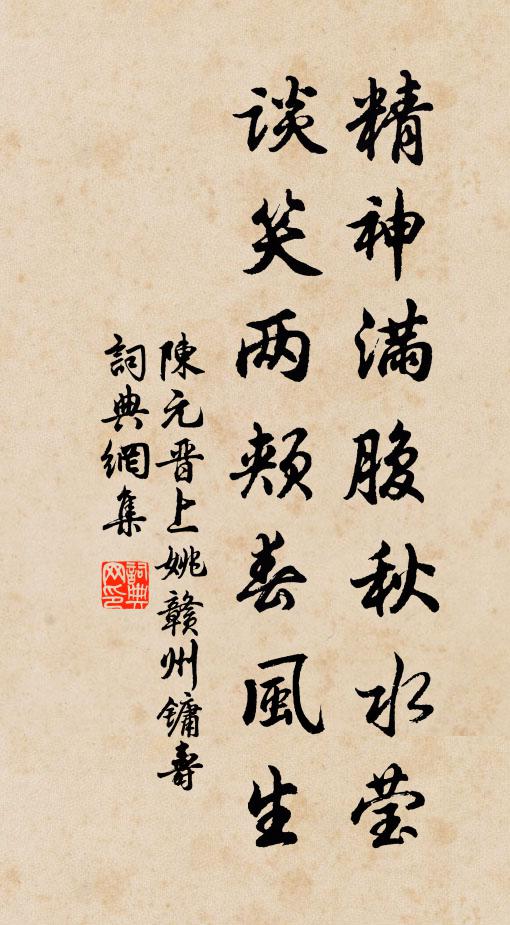 精神满腹秋水莹
谈笑两颊春风生
陳元晋上姚贛州鏞壽
詞典網集
詞典网印